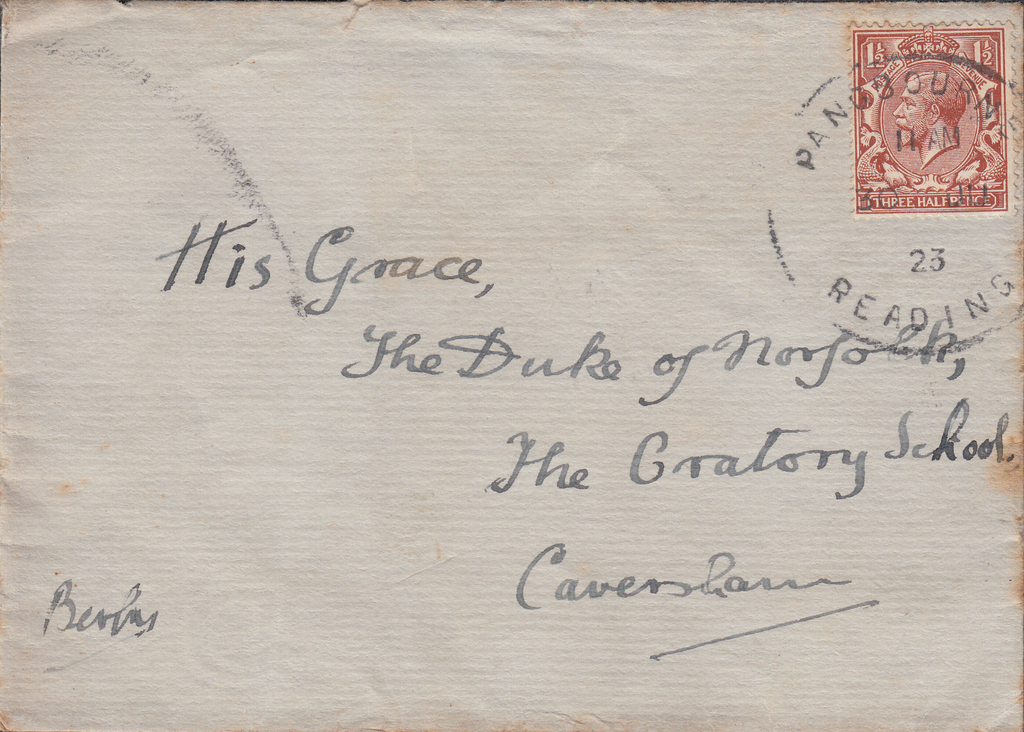 1½ 1½
POSTAGE REVENUE
THREE HALFPENCE
PANGBOURNE
11 AM
30 JU
23
READING
His Grace,
The Duke of Norfolk,
The Oratory School.
Caversham
Berks